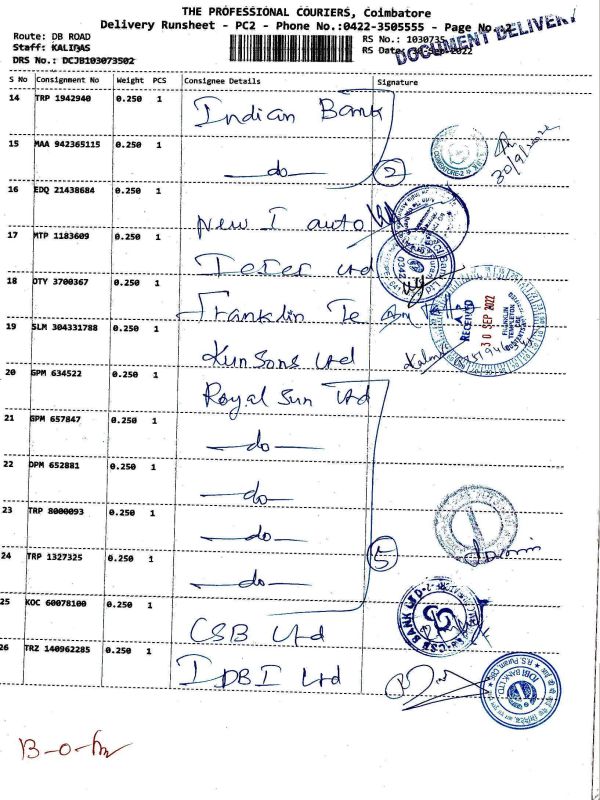 THE PROFESSIONAL COURIERS, Coimbatore
Delivery Runsheet - PC2 - Phone No.:0422-3505555 - Page No. 2
Route: DB ROAD
RS No.: 1030735
Staff: KALIDAS
RS Date: 30-Sep-2022
DRS No.: DCJB103073502
DOCUMENT DELIVERY
S No Consignment No Weight PCS Consignee Details Signature
14 TRP 1942940 0.250 1 Indian Bank
15 MAA 942365115 0.250 1 -do- 2
30/9/2022
16 EDQ 21438684 0.250 1 New I auto
17 MTP 1183609 0.250 1 Ltd
18 DTY 3700367 0.250 1 Franklin Te
RECEIVED
30 SEP 2022
FRANKLIN
TEMPLETON
19 SLM 304331788 0.250 1 Kunsons Ltd
20 GPM 634522 0.250 1 Royal Sun Ltd
21 GPM 657847 0.250 1 -do-
22 DPM 652881 0.250 1 -do-
23 TRP 8000093 0.250 1 -do-
24 TRP 1327325 0.250 1 -do- 5
25 KOC 60078100 0.250 1 CSB Ltd
CSB BANK LTD
26 TRZ 140962285 0.250 1 IDBI Ltd
IDBI BANK LTD.
R.S. Puram